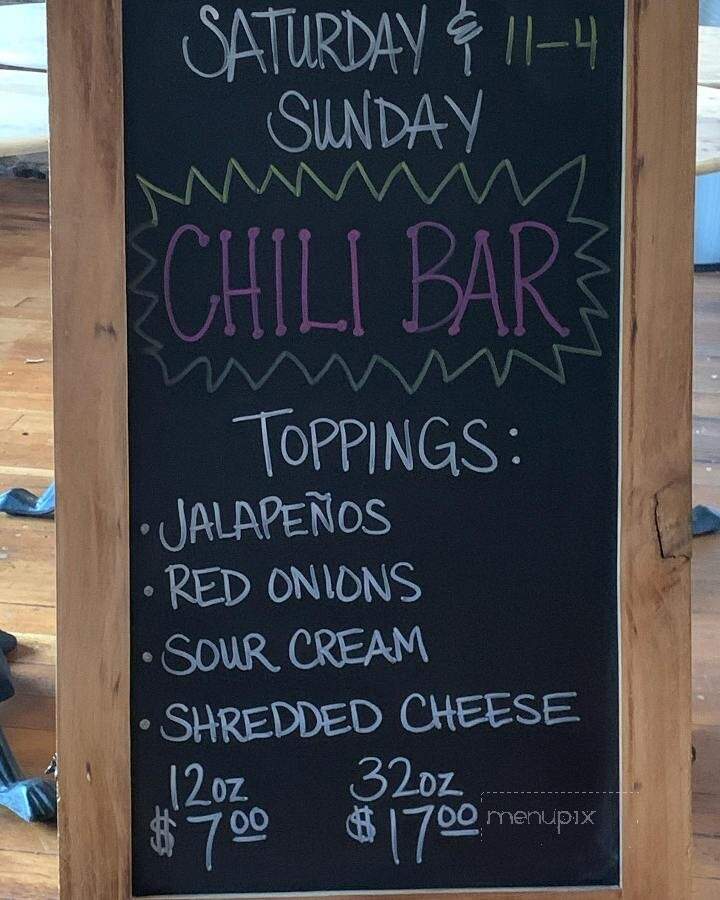 SATURDAY & 11-4
SUNDAY
CHILI BAR
TOPPINGS:
• JALAPEÑOS
• RED ONIONS
• SOUR CREAM
• SHREDDED CHEESE
12oz 32oz
$7.00 $17.00
menupix